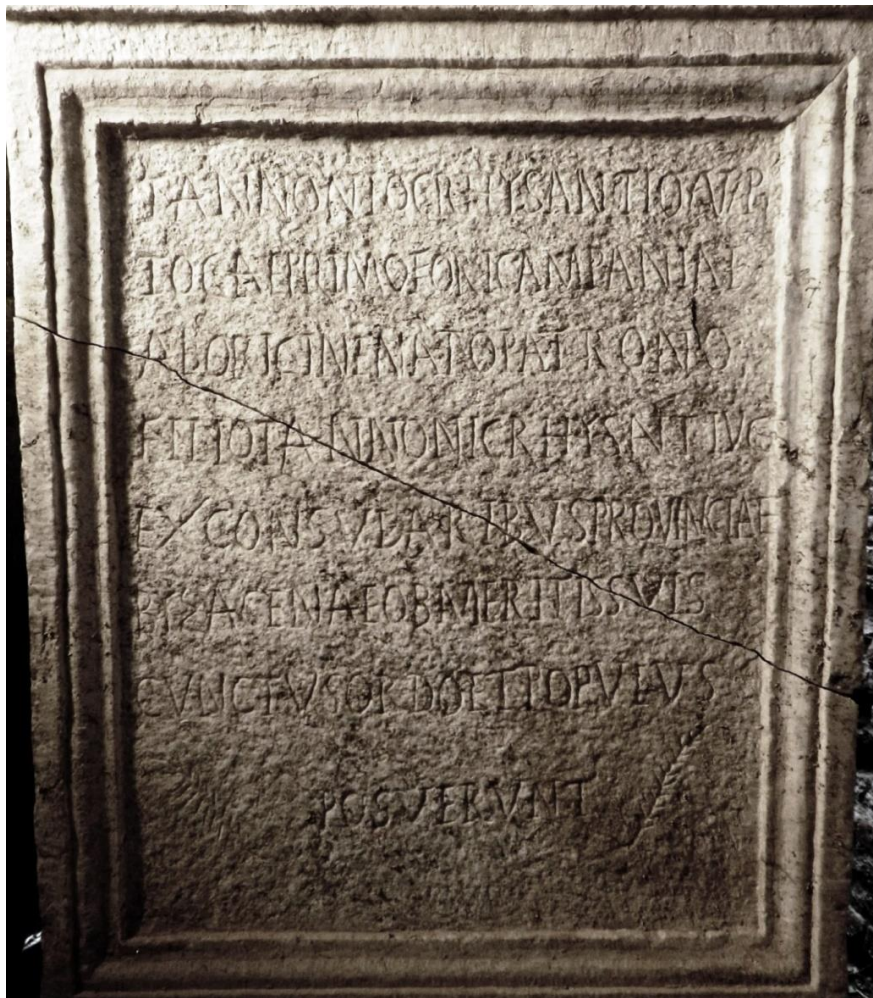 TANNONIOCRHYSANTIOVPP
TOGAEPRIMOFORICAMPANIAE
ABORIGINENATOPATRONO
FILIOTANNONICRHYSNTIVGS
EXCONSVLARIBVSPROVINCIAE
BIZACENAEOBMERITISSVIS
CVNCTVSORDOETPOPVLVS
POSVERVNT